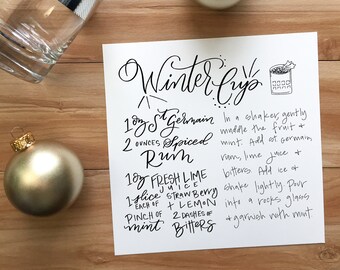 Winter Cup
1 oz St Germain
2 ounces Spiced
Rum
1 oz FRESH LIME
JUICE
1 slice STRAWBERRY
EACH OF + LEMON
PINCH OF 2 DASHES OF
mint BITTERS
In a shaker gently
muddle the fruit &
mint. Add st germain
rum, lime juice &
bitters. Add ice &
shake lightly. Pour
into a rocks glass
& garnish with mint